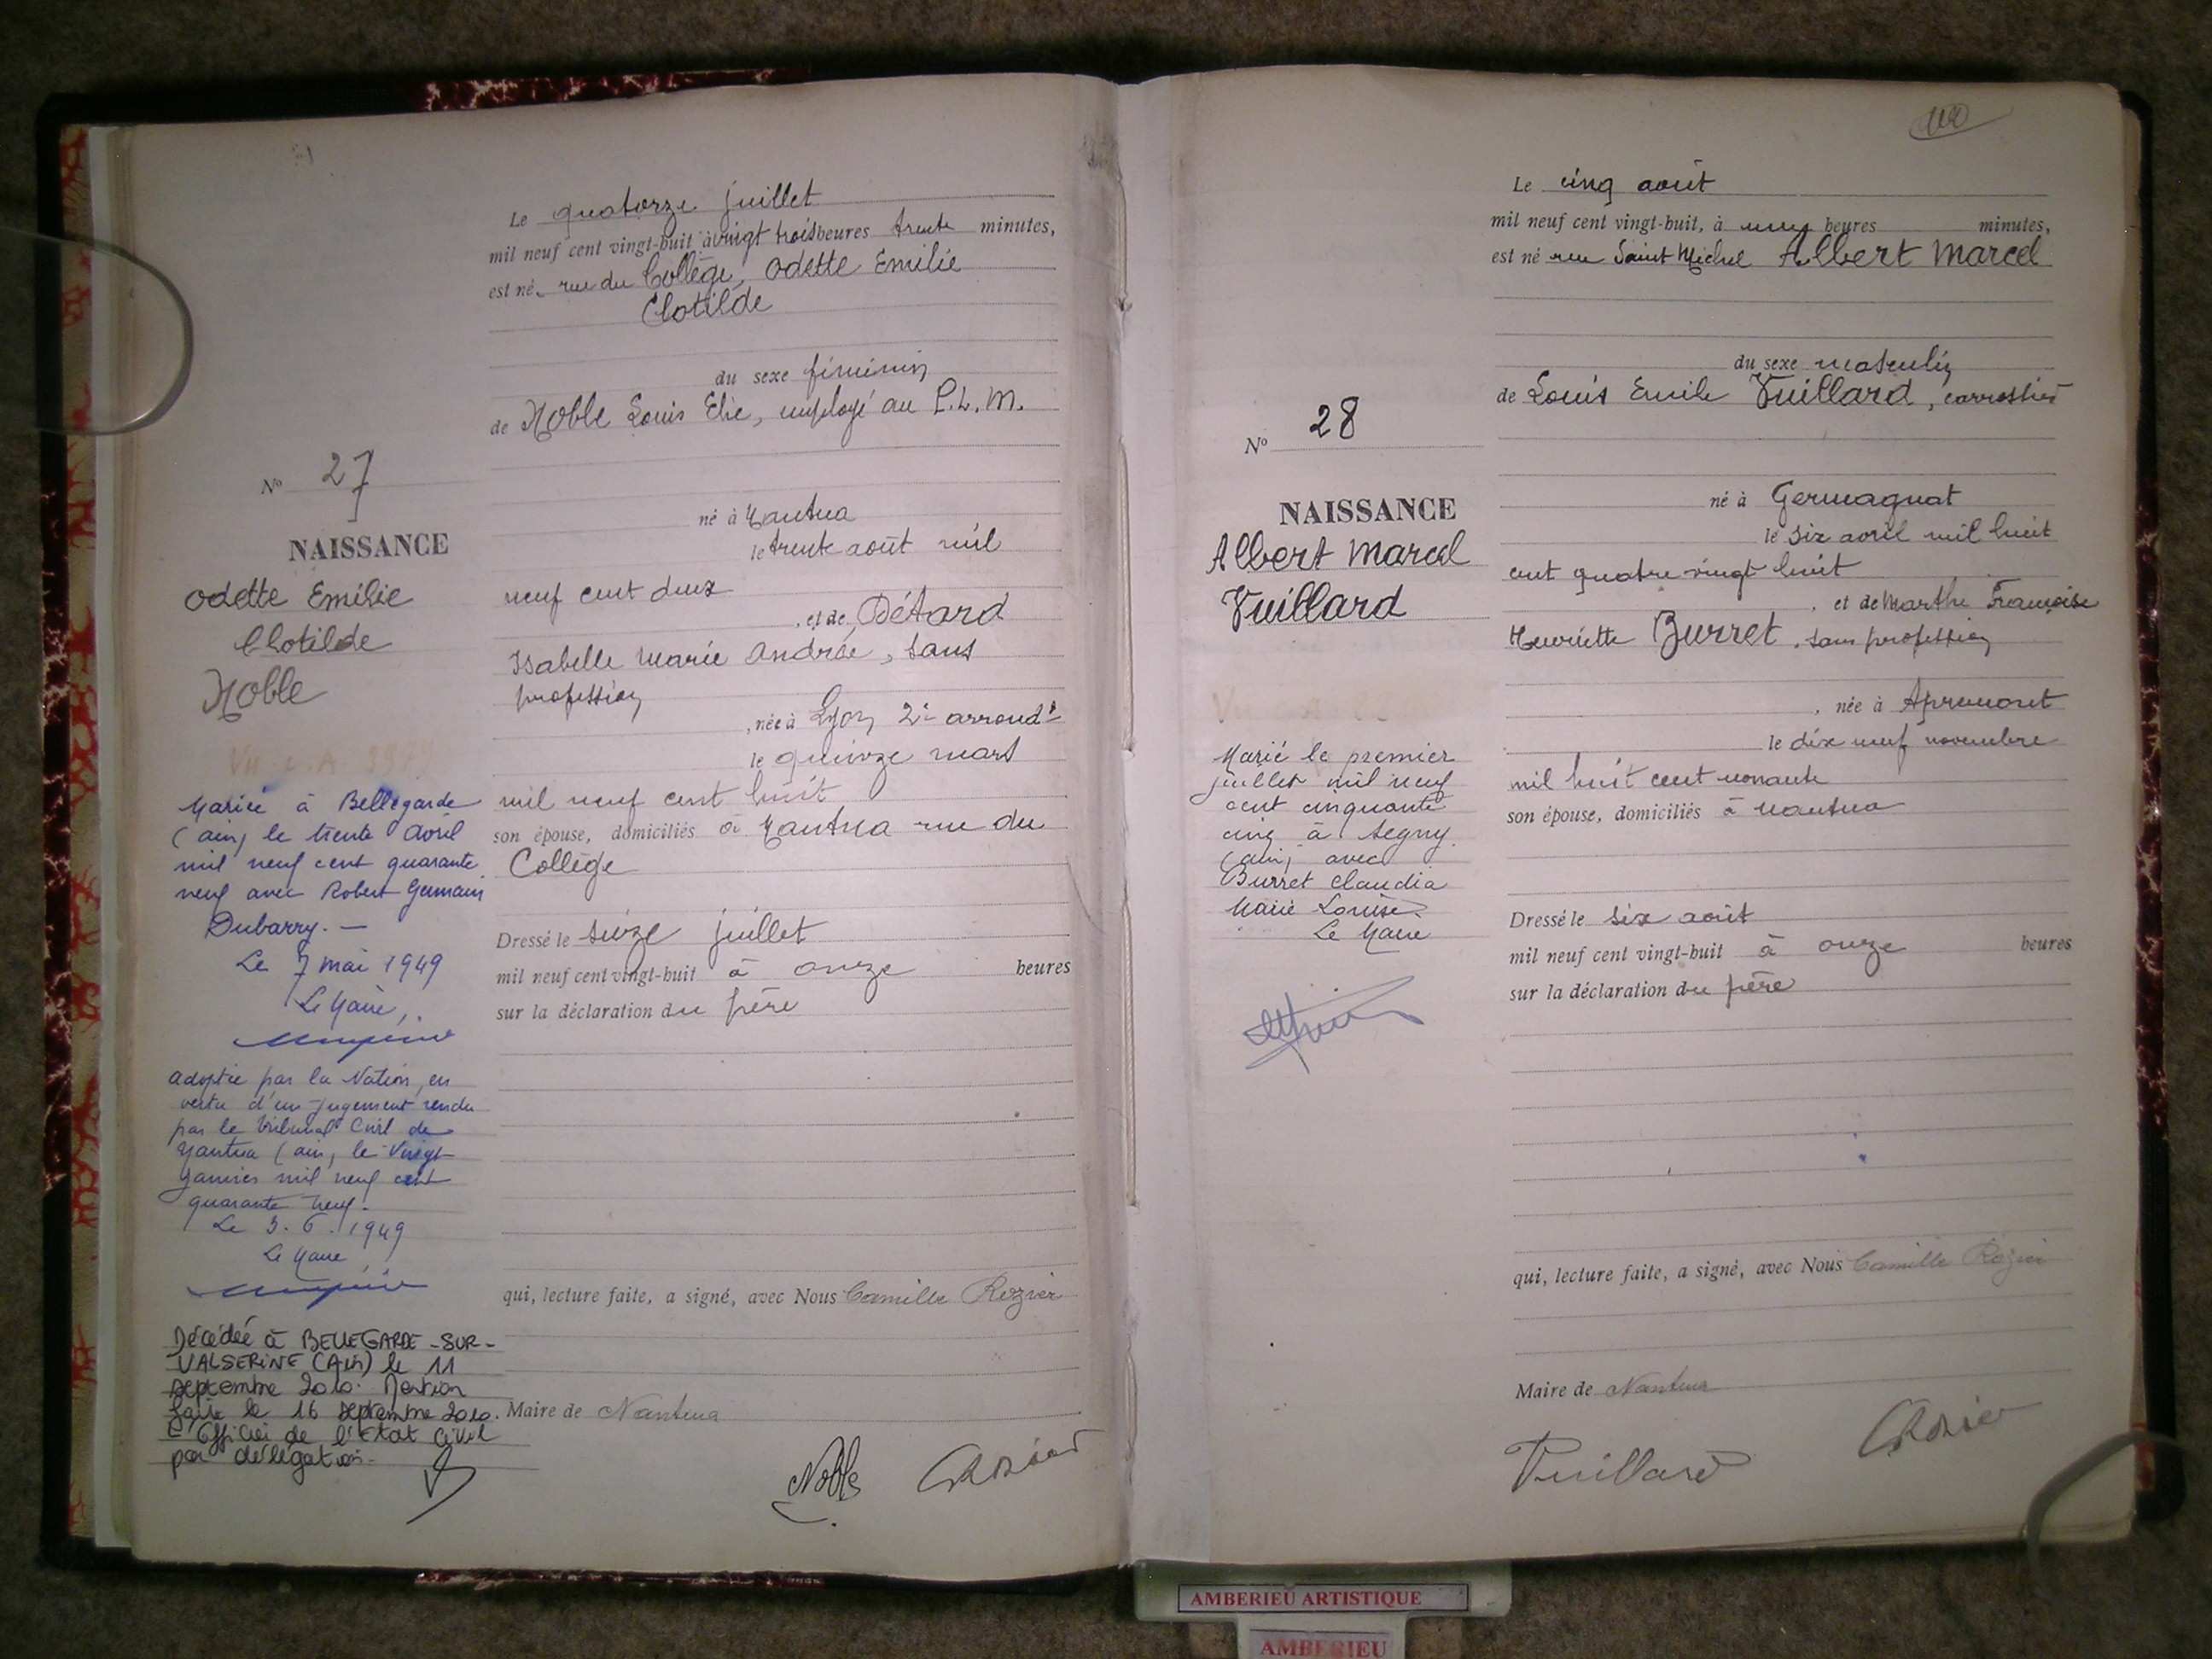 Le quatorze juillet
mil neuf cent vingt-huit à vingt trois heures trente minutes,
est né rue du Collège, Odette Emilie
Clotilde
du sexe féminin
de Noble Louis Elie, employé au P.L.M.
né à Nantua
le trente août mil
neuf cent deux
, et de Détard
Isabelle Marie Andrée, sans
profession
, née à Lyon 2e arrondt
le quinze mars
mil neuf cent huit
son épouse, domiciliés à Nantua rue du
Collège
Dressé le seize juillet
mil neuf cent vingt-huit à onze heures
sur la déclaration du père
qui, lecture faite, a signé, avec Nous Camille Rozier
Maire de Nantua
Noble CRozier
No 27
NAISSANCE
Odette Emilie
Clotilde
Noble
Mariée à Bellegarde
(ain) le trente avril
mil neuf cent quarante
neuf avec Robert Germain
Dubarry. —
Le 7 mai 1949
Le Maire,
adoptée par la Nation, en
vertu d'un jugement rendu
par le tribunal Civil de
Nantua (ain, le vingt
janvier mil neuf cent
quarante neuf.
Le 3. 6. 1949
Le Maire
Décédée à BELLEGARDE-SUR-
VALSERINE (Ain) le 11
septembre 2010. Mention
faite le 16 septembre 2010.
L'Officier de l'Etat Civil
par délégation.
Le cinq août
mil neuf cent vingt-huit, à heures minutes,
est né rue Saint Michel Albert Marcel
du sexe masculin
de Louis Emile Vuillard, carrossier
né à Germagnat
le six avril mil huit
cent quatre-vingt huit
, et de Marthe Françoise
Henriette Burret, sans profession
, née à Apremont
le dix neuf novembre
mil huit cent nonante
son épouse, domiciliés à Nantua
Dressé le six août
mil neuf cent vingt-huit à onze heures
sur la déclaration du père
qui, lecture faite, a signé, avec Nous Camille Rozier
Maire de Nantua
Vuillard CRozier
No 28
NAISSANCE
Albert Marcel
Vuillard
Marié le premier
juillet mil neuf
cent cinquante
cinq à Segny
(ain) avec
Burret Claudia
Marie Louise.
Le Maire
AMBERIEU ARTISTIQUE
AMBERIEU